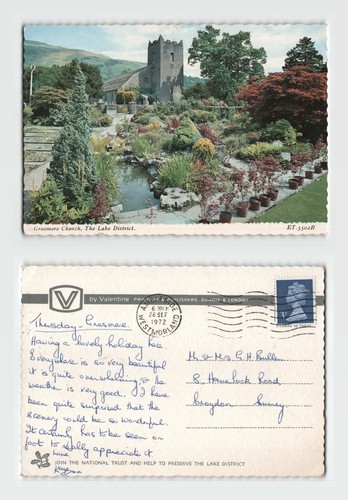 Grasmere Church, The Lake District.
ET.5502R
by Valentine
6 PM
26 SEP
1972
WESTMORLAND
3P
Thursday - Grasmere.
Having a lovely holiday here
Everywhere is so very beautiful
it is quite overwhelming & the
weather is very good. I have
been quite surprised that the
scenery could be so wonderful.
It certainly has to be seen on
foot to really appreciate it
Love
Mr & Mrs G H
8. Road,
Croydon Surrey
JOIN THE NATIONAL TRUST AND HELP TO PRESERVE THE LAKE DISTRICT